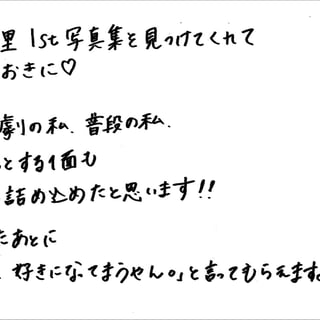 里 1st写真集を見つけてくれて
おきに♡
劇の私、普段の私、
とする1面も
詰め込めたと思います!!
たあとに
好きになってまうやん。」と言ってもらえます